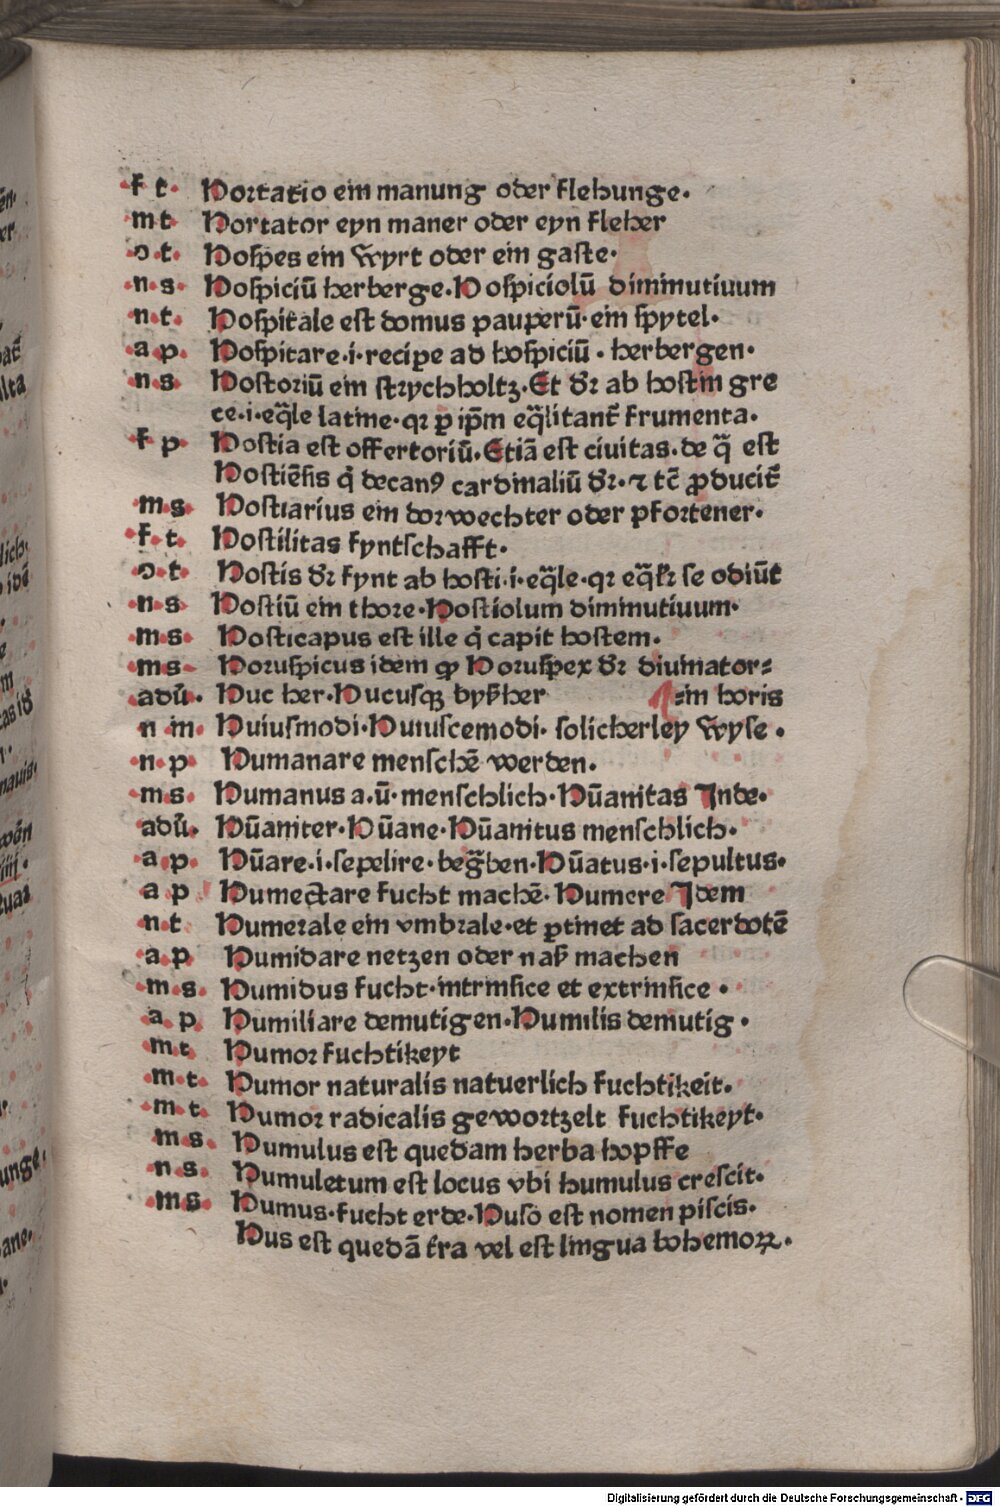 f t· Hortatio ein manung oder flehunge.
m t Hortator eyn maner oder eyn fleher
ɔ·t· Hospes ein wyrt oder ein gaste·
·n·s· Hospiciū herberge·Hospiciolū diminutiuum
·n·t· Hospitale est domus pauperū·ein spytel·
·a·p· Hospitare·i·recipe ad hospiciū·herbergen·
·n·s Hostoriū ein strychholtz·Et dr̄ ab hostin gre
ce·i·eq̄le latine·qr ꝑ ip̄m eq̄litant᷑ frumenta·
f p Hostia est offertoriū·Etiā est ciuitas·de q̄ est
Hostiēsis q̇ decanꝰ cardinaliū dr̄·⁊ tc̄ ꝓducit᷑
·m·s· Hostiarius ein dorwechter oder pfortener·
·f·t· Hostilitas fyntschafft·
·ɔ·t Hostis dr̄ fynt ab hosti·i·eq̄le·qr eq̄lr̄ se odiūt
·n·s Hostiū ein thore·Hostiolum diminutiuum·
·m s· Hosticapus est ille q̇ capit hostem·
·m s· Horuspicus idem ꝙ Horuspex dr̄ diuinator⸗
·adū· Huc her·Hucusqꝫ byßher ⸗in horis
n m· Huiusmodi·Huiuscemodi·solicherley wyse·
·n·p· Humanare menschē werden·
·m s· Humanus a·ū·menschlich·Hūanitas Inde·
adū· Hūaniter·Hūane·Hūanitus menschlich·
·a p· Hūare·i·sepelire·beg̃ben·Hūatus·i·sepultus·
a p Humectare fucht machē·Humere Idem
·n t Humerale ein vmbrale·et ꝑtinet ad sacerdotē
·a·p Humidare netzen oder naß machen
·m·s· Humidus fucht·intrinsice et extrinsice·
·a p· Humiliare demutigen·Humilis demutig·
·m t Humor fuchtikeyt
·m·t· Humor naturalis natuerlich fuchtikeit·
·m·t· Humor radicalis gewortzelt fuchtikeyt·
·m s· Humulus est quedam herba hopffe
·n s· Humuletum est locus vbi humulus crescit·
·m s· Humus·fucht erde·Huso est nomen piscis·
Hus est quedā t᷑ra vel est lingua bohemoꝝ·
Digitalisierung gefördert durch die Deutsche Forschungsgemeinschaft · DFG